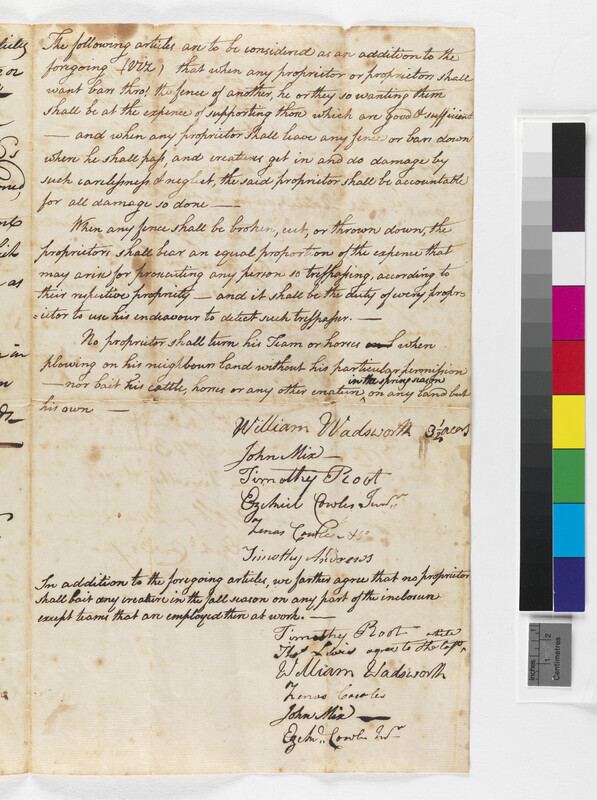 The following articles are to be considered as an addition to the
foregoing (VIZ) that when any proprietor or proprietors shall
want bars thro' the fence of another, he or they so wanting them
shall be at the expence of supporting them which are good & sufficient
— and when any proprietor shall leave any fence or bars down
where he shall pass, and creatures get in and do damage by
such carelessness & neglect, the said proprietor shall be accountable
for all damage so done —
When any fence shall be broken, cut, or thrown down, the
proprietors shall bear an equal proportion of the expence that
may arise for prosecuting any person so trespassing, according to
their respective propriety — and it shall be the duty of every propri-
=ietor to use his endeavour to detect such trespasser. —
No proprietor shall turn his Team or horses when
plowing on his neighbours land without his particular permission
in the spring season
— nor bait his cattle, horses or any other creature ‸ on any land but
his own —
William Wadsworth 3 1/2 acors
John Mix —
Timothy Root
Ezekiel Cowles Junr
Zenas Cowles
Timothy Andrews
In addition to the foregoing articles, we farther agree that no proprietor
shall bait any creature in the fall season on any part of the inclosure
except teams that are employed then at work. —
Timothy Root
Thos Lewis agree to the last
William Wadsworth
Zenas Cowles
John Mix —
Ezekl Cowles Junr
Centimetres